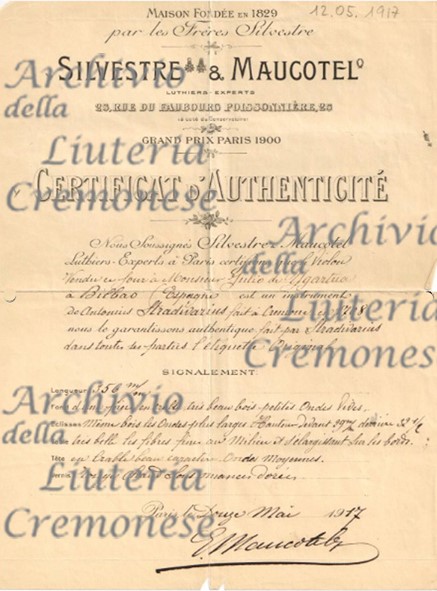 12.05.1917
MAISON FONDÉE EN 1829
par les Frères Silvestre
SILVESTRE & MAUCOTEL
LUTHIERS-EXPERTS
28, RUE DU FAUBOURG POISSONNIÈRE, 28
(à côté du Conservatoire)
GRAND PRIX PARIS 1900
CERTIFICAT D'AUTHENTICITÉ
Nous Soussignés Silvestre & Maucotel
Luthiers-Experts à Paris certifions que le Violon
Vendu ce Jour à Monsieur Julio de Ygartua
à Bilbao (Espagne) est un instrument
de Antonius Stradivarius fait à Cremone en
nous le garantissons authentique fait par Stradivarius
dans toutes ses parties l'étiquette Originale
SIGNALEMENT
Longueur 356 m/m
Fond d'une pièce en très beau bois petites Ondes
Eclisses Même bois les Ondes plus larges Hauteur devant derrière
très belle les fibres fines au Milieu et s'élargissant sur les bords
Tête en Erable beau caractère Ondes Moyennes
Vernis Rouge Sous nuances dorées
Paris le Douze Mai 1917
E. Maucotel
Archivio
della
Liuteria
Cremonese
Archivio
della
Liuteria
Cremonese
Archivio
della
Liuteria
Cremonese